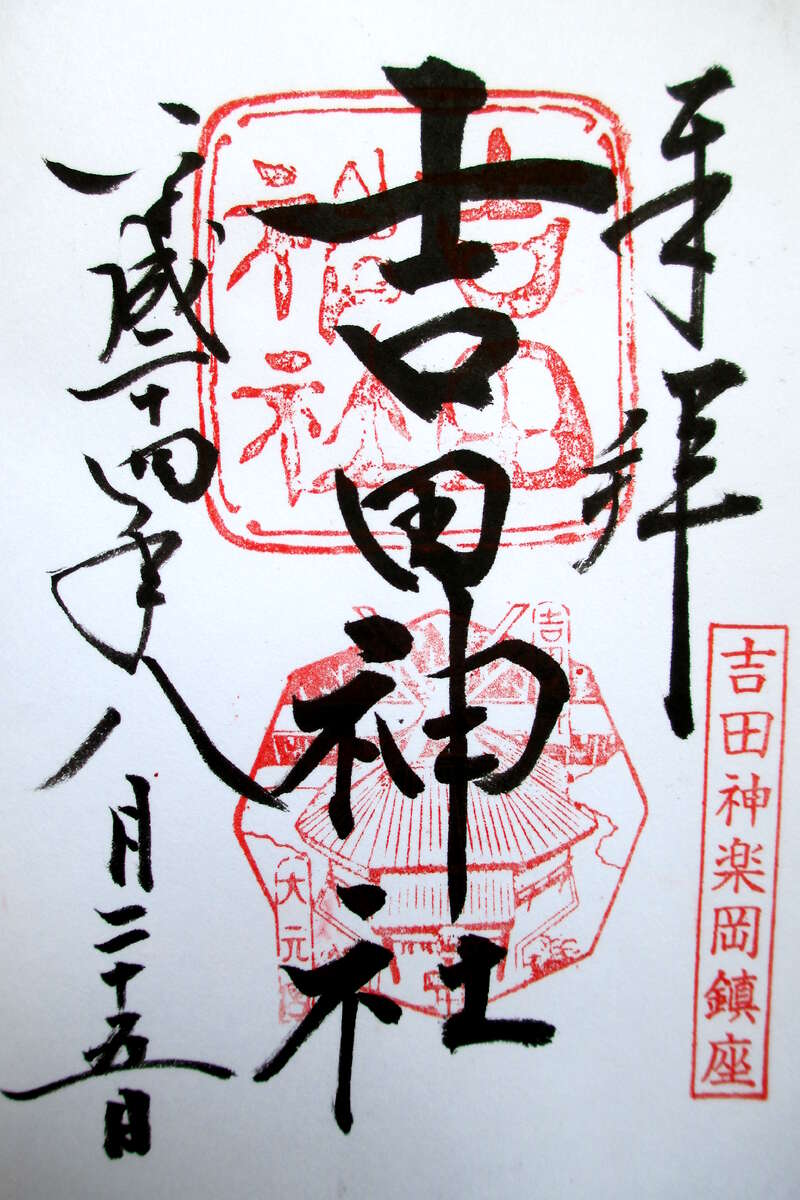 奉拝
吉田神楽岡鎮座
吉田神社
吉田
神社
大元宮
平成二十四年八月二十五日